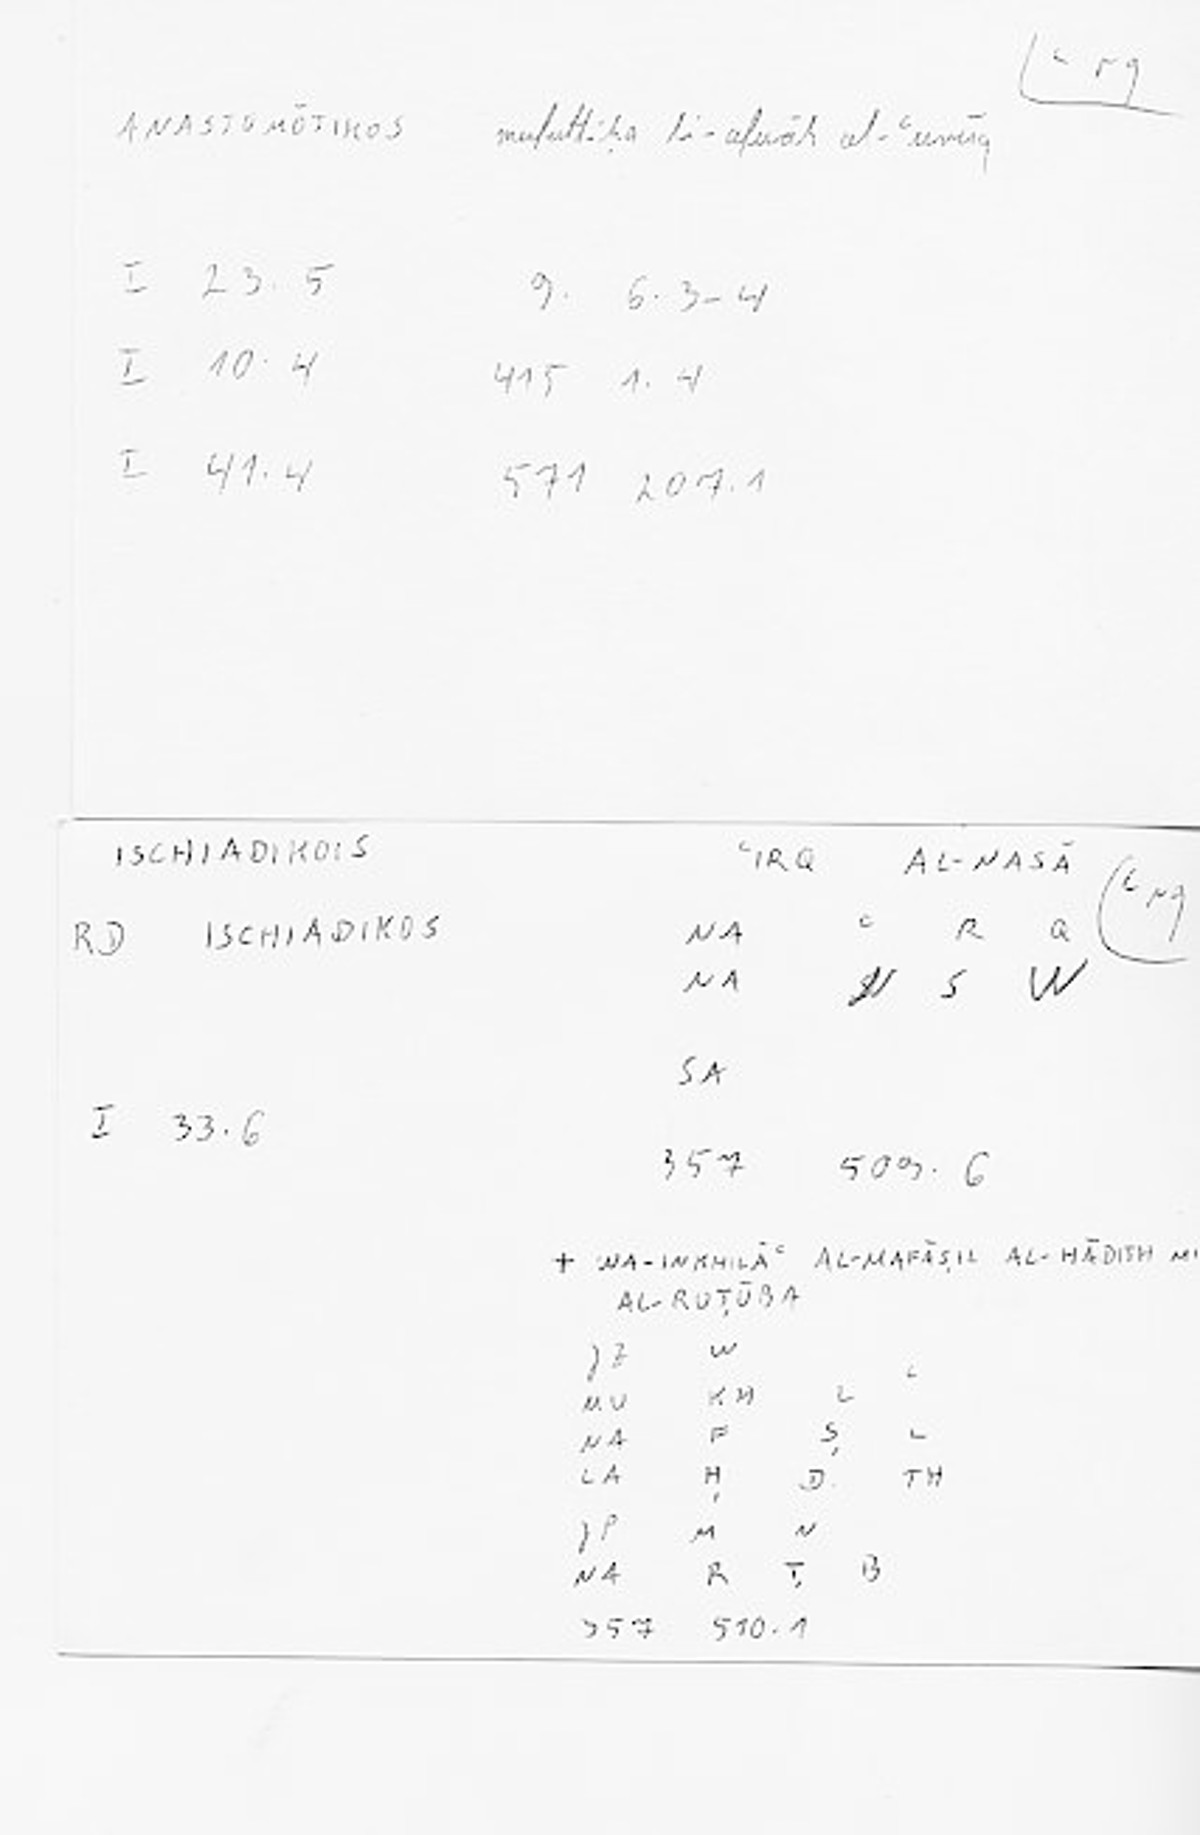 ʿrq
ANASTOMŌTIKOS mufattiḥa li-afwāh al-ʿurūq
I 23.5 9. 6.3-4
I 10.4 415 1.4
I 41.4 571 207.1
ISCHIADIKOIS ʿIRQ AL-NASĀ
ʿrq
RD ISCHIADIKOS NA ʿ R Q
NA N S W
SA
I 33.6
357 509.6
+ WA-INKHILĀʿ AL-MAFĀṢIL AL-HĀDITH MI
AL-RUṬŪBA
JZ W
MU KH L ʿ
NA F Ṣ L
LA Ḥ D. TH
JP M N
NA R Ṭ B
357 510.1